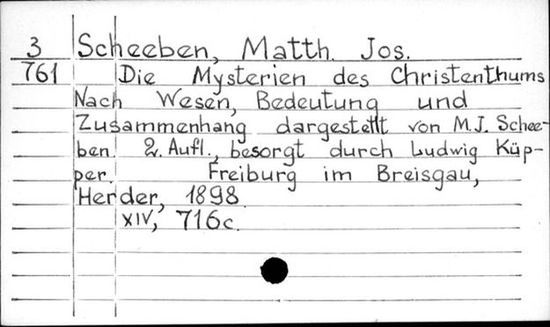 3 Scheeben, Matth. Jos.
761 Die Mysterien des Christenthums
Nach Wesen, Bedeutung und
Zusammenhang dargestellt von M.J. Schee-
ben. 2. Aufl., besorgt durch Ludwig Küp-
per. Freiburg im Breisgau,
Herder, 1898.
XIV, 716c.